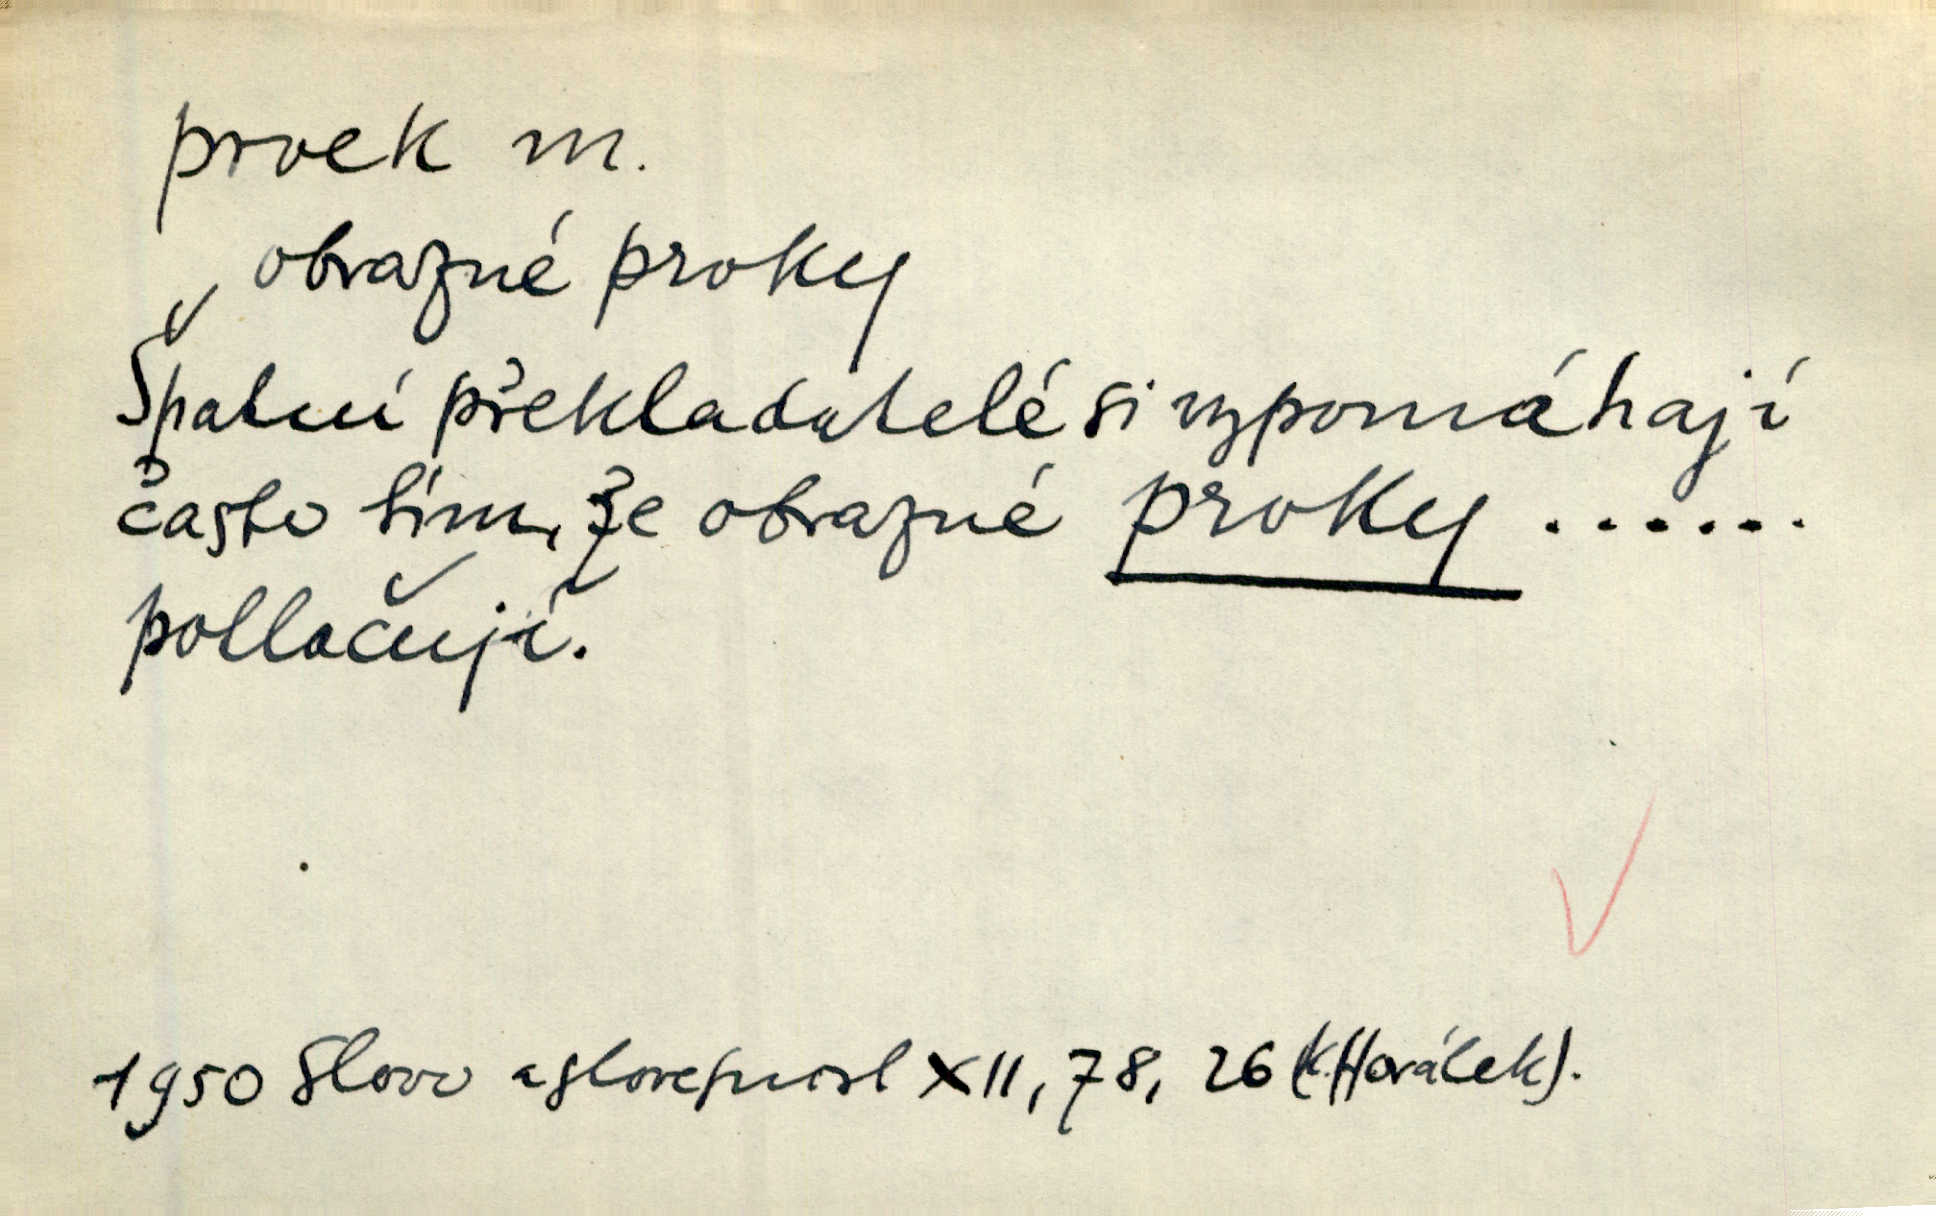 prvek m.
obrazné prvky
Špatní překladatelé si vypomáhají
často tím, že obrazné prvky .......
potlačují.
1950 Slovo a slovesnost XII, 78, 26 (K. Horálek).